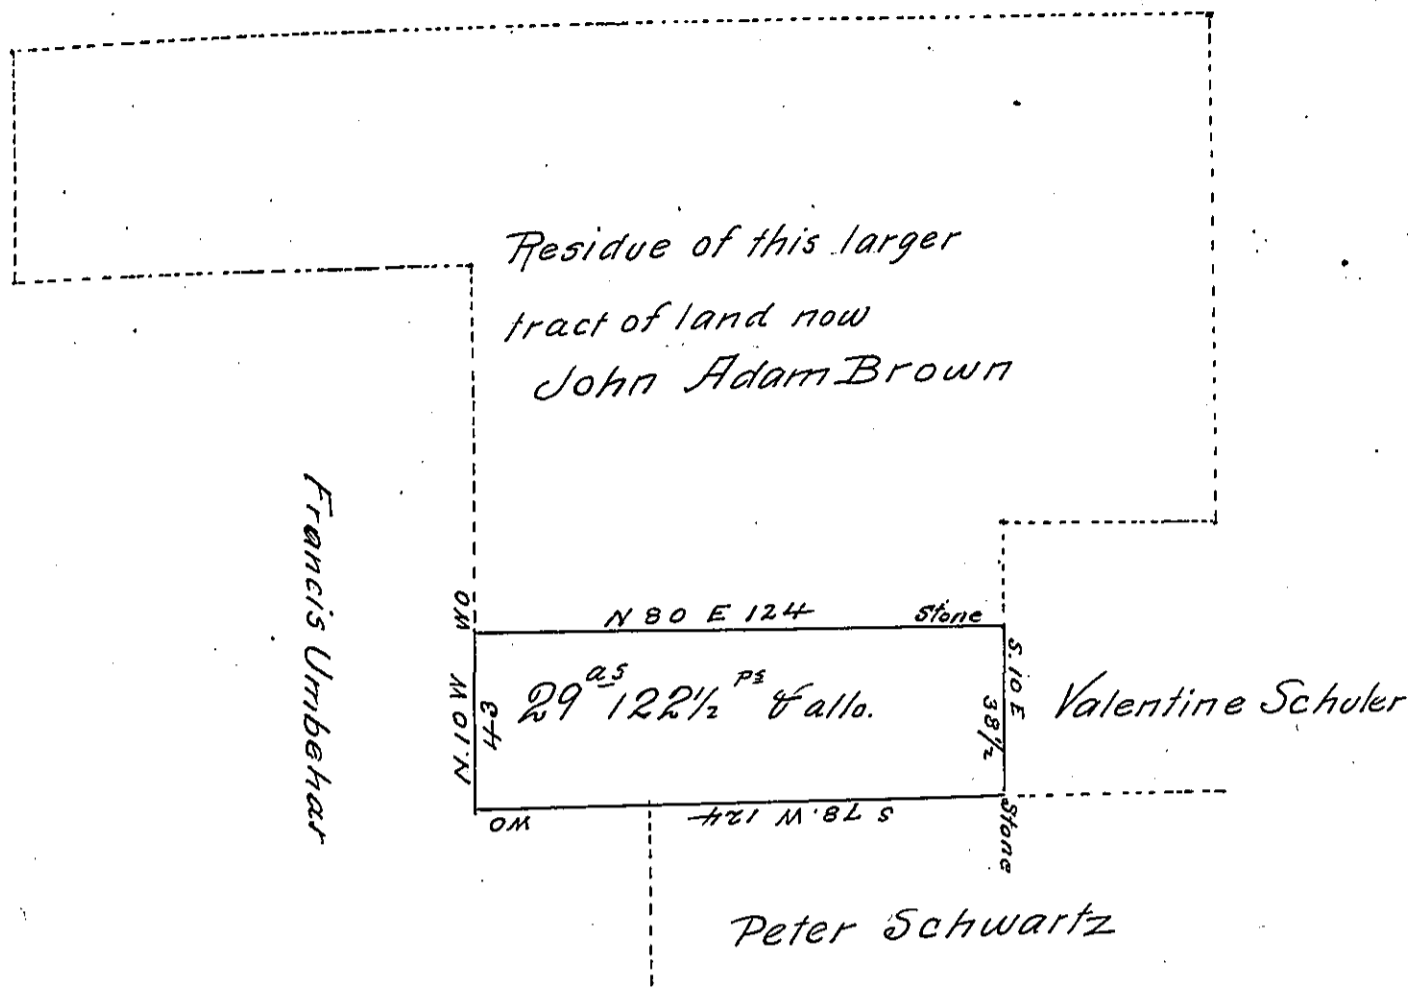 Residue of this larger
tract of land now
John Adam Brown
Francis Umbehar
WO
N 80 E 124
Stone
N.10 W
43
29 as 122½ ps & allo.
S. 10 E
38½
Valentine Schuler
WO
S 78. W 124
Stone
Peter Schwartz